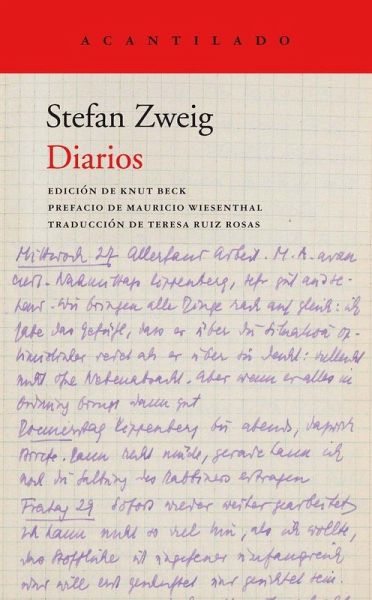 ACANTILADO
Stefan Zweig
Diarios
EDICIÓN DE KNUT BECK
PREFACIO DE MAURICIO WIESENTHAL
TRADUCCIÓN DE TERESA RUIZ ROSAS
Mittwoch 27 Allerhand Arbeit. M. A. avan
ciert. Nachmittags Kippenberg, sehr gut
Wir bringen alle Dinge rasch auf gleich: ich
habe das Gefühl, dass er über die Situation op-
timistischer redet als er über sie denkt: vielleicht
nicht ohne Nebenabsicht. Aber wenn er alles in
Ordnung bringt dann gut
Donnerstag Kippenberg bis abends, dazwischen
Dann recht müde, gerade kann ich
noch die Sitzung des Rabbiners ertragen
Freitag 29 Sofort wieder weiter gearbeitet
ich kann nicht so viel tun, als ich wollte,
das Stoffliche ist ungeheuer umfangreich
und will erst gesichtet sein.